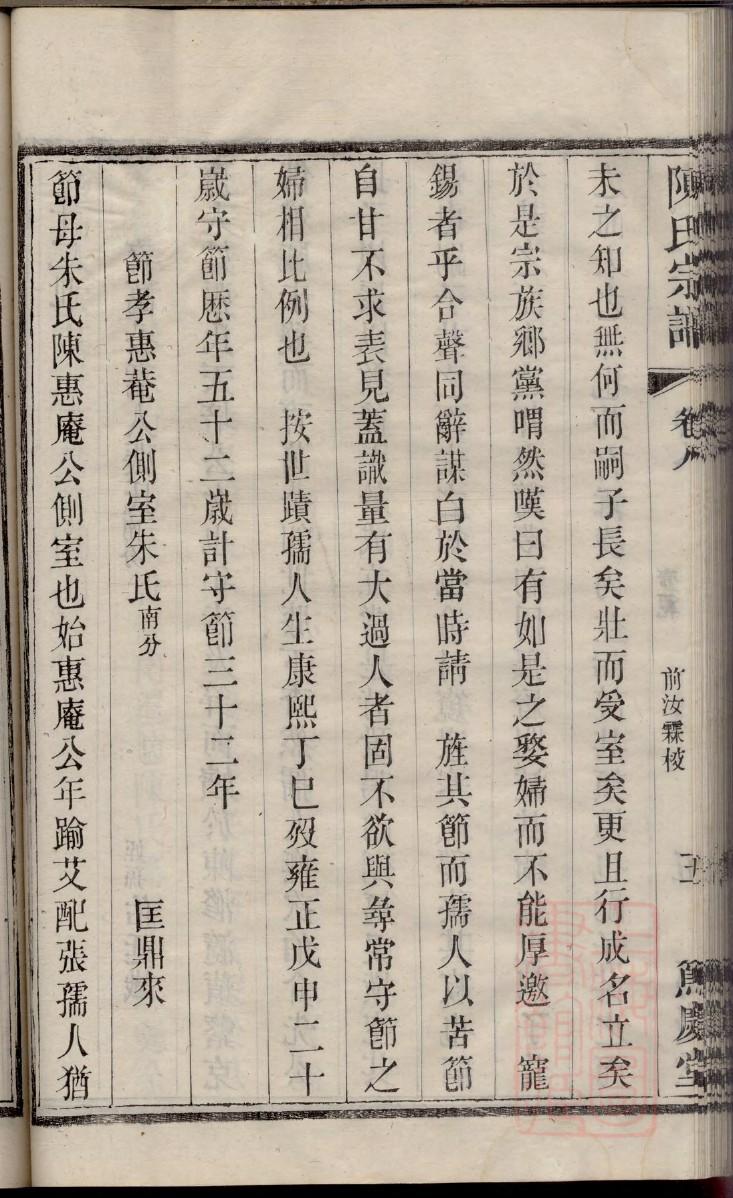 陳氏宗譜
卷八
前汝霖校
五
篤慶堂
未之知也無何而嗣子長矣壯而受室矣更且行成名立矣
於是宗族鄉黨喟然嘆曰有如是之嫠婦而不能厚邀 寵
錫者乎合聲同辭謀白於當時請 旌其節而孺人以苦節
自甘不求表見蓋識量有大過人者固不欲與尋常守節之
婦相比例也 按世蹟孺人生康熙丁巳歿雍正戊申二十
嵗守節歴年五十二嵗計守節三十二年
節孝惠菴公側室朱氏南分 匡鼎來
節母朱氏陳惠庵公側室也始惠庵公年踰艾配張孺人猶